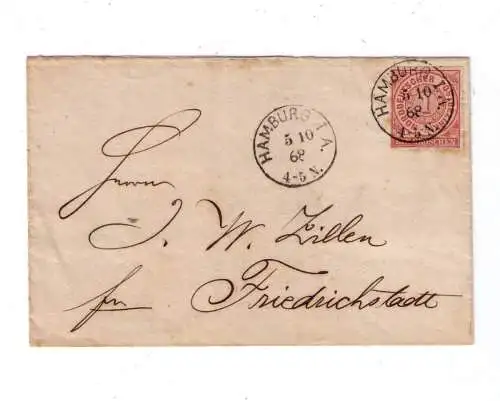 HAMBURG I A.
5 10
68
4-5 N.
HAMBURG I A.
5 10
68
4-5 N.
NORDDEUTSCHER
1
Herrn
J. W. Zillen
in
Friedrichstadt